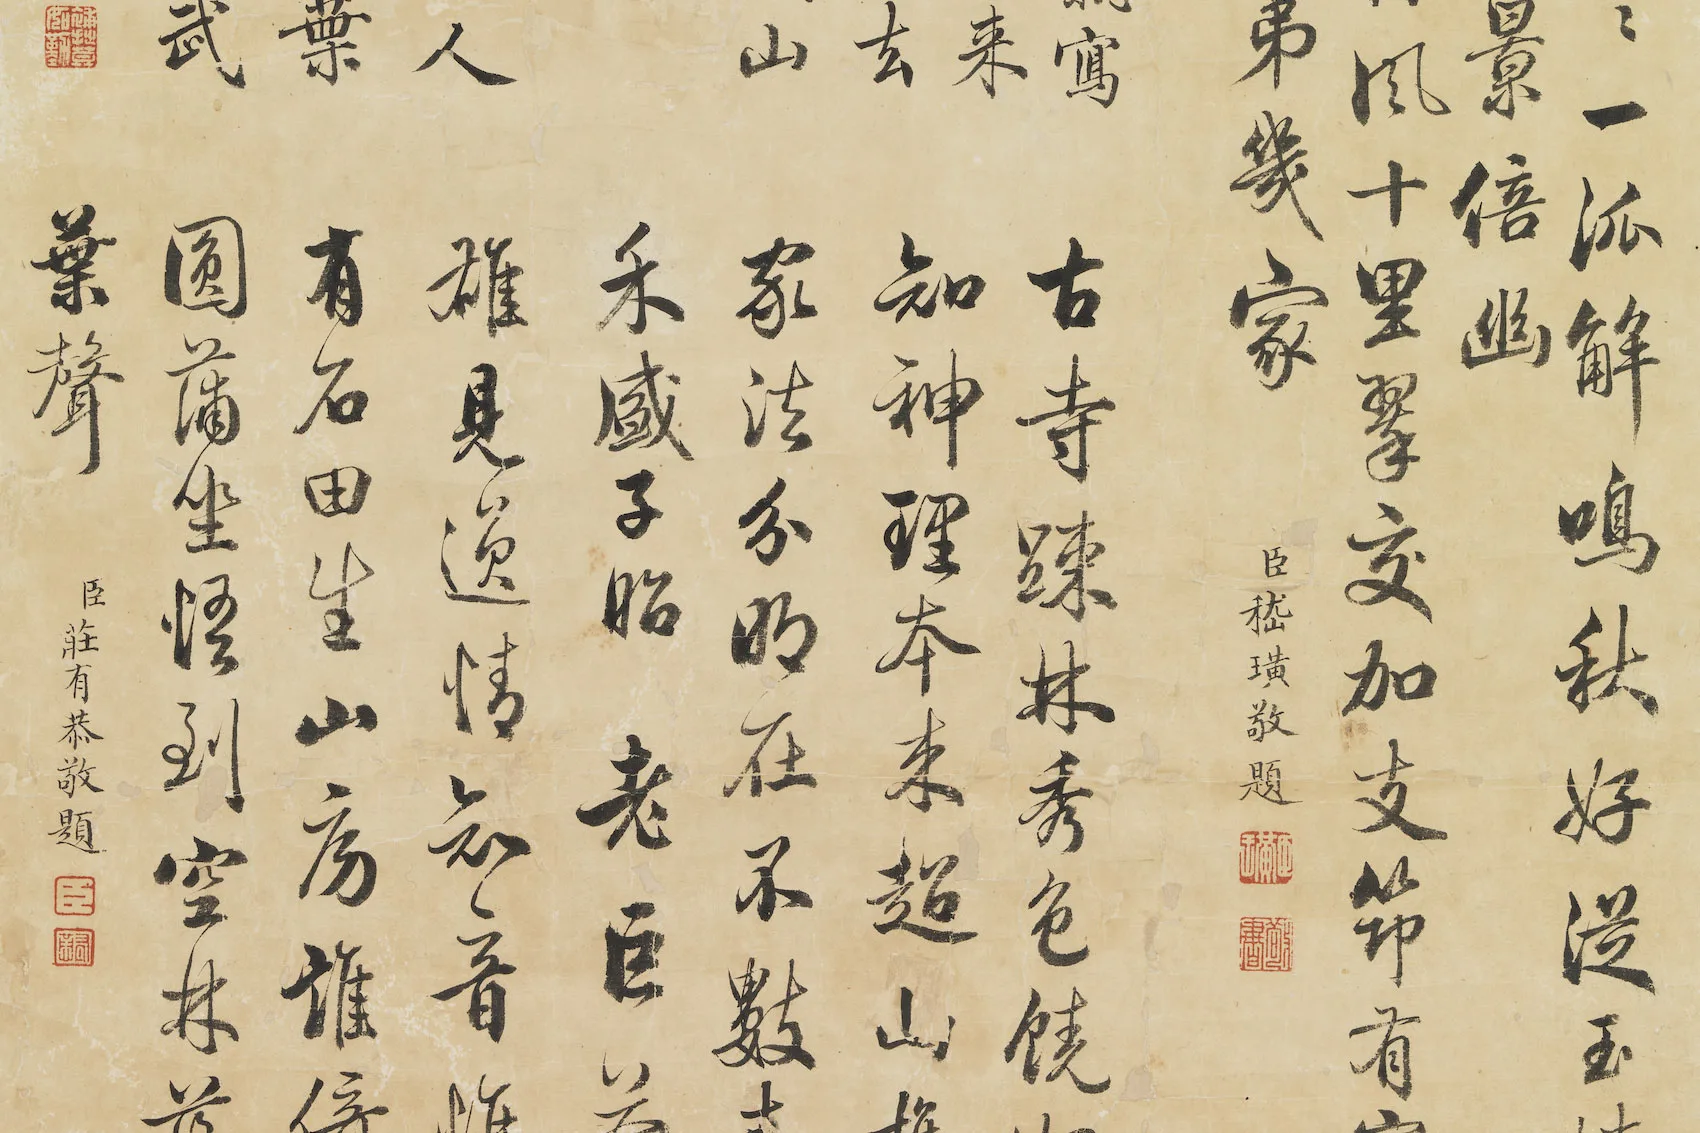 一派解鳴秋好從玉
景倍幽
風十里翠交加支笻有
弟幾家
臣嵇璜敬題
寫
古寺疎林秀色饒
来
去
知神理本来超山
山
家法分明在不數
禾盛子昭 老巨
人
雄見逸情知音惟
葉
有石田生山房誰傍
武
圓蒲坐悟到空林落
葉聲
臣莊有恭敬題
臣